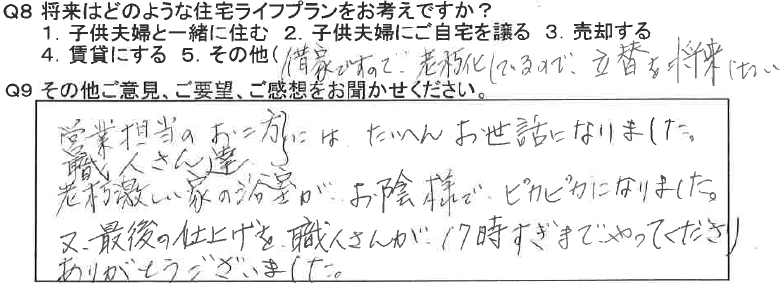 Q8 将来はどのような住宅ライフプランをお考えですか？
1. 子供夫婦と一緒に住む 2. 子供夫婦にご自宅を譲る 3. 売却する
4. 賃貸にする 5. その他（借家ですので、老朽化しているので、立替を将来したい
Q9 その他ご意見、ご要望、ご感想をお聞かせください。
営業担当のお二方には、たいへんお世話になりました。
職人さん達
老朽激しい家の浴室が、お陰様で、ピカピカになりました。
又、最後の仕上げを、職人さんが、17時すぎまでやってくださり
ありがとうございました。